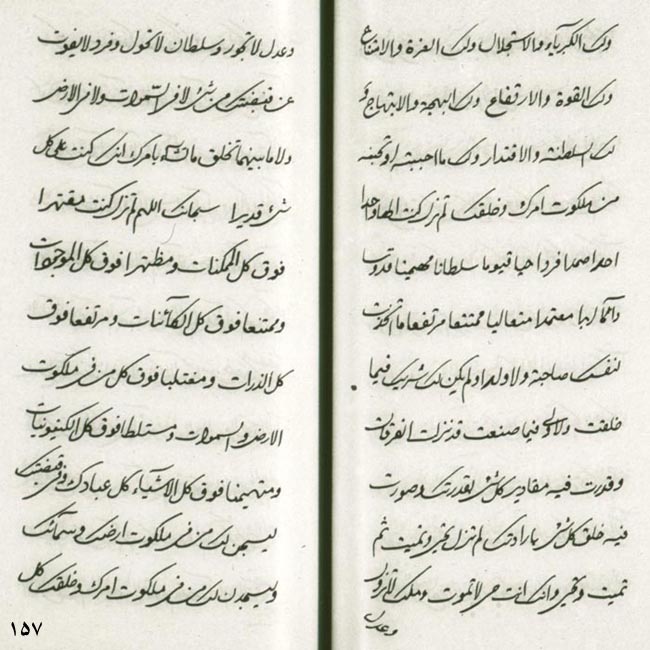 ولك الكبرياء والاستجلال ولك العزة والامتناع
ولك القوة والارتفاع ولك البهجة والابتهاج و
لك السلطنة والاقتدار ولك ما احببته او تحبنه
من ملكوت امرك وخلقك لم تزل كنت الها واحدا
احدا صمدا فردا حيا قيوما سلطانا مهيمنا قدوسا
دائما ابدا معتمدا متعاليا ممتنعا مرتفعا ما اتخذت
لنفسك صاحبة ولا ولدا ولم يكن لك شريك فيما
خلقت ولا ولى فيما صنعت قد نزلت الفرقان
وقدرت فيه مقادير كل شئ بقدرتك وصورت
فيه خلق كل شئ بارادتك لم تزل تحيى وتميت ثم
تميت وتحيى وانك انت حى لا تموت وملك لا تزول
وعدل
وعدل لا تجور وسلطان لا تحول وفرد لا يفوت
عن قبضتك من شئ لا فى السموات ولا فى الارض
ولا ما بينهما تخلق ما تشاء بامرك انك كنت على كل
شئ قديرا سبحانك اللهم لم تزل كنت مقتدرا
فوق كل الممكنات ومظتهرا فوق كل الموجودات
وممتنعا فوق كل الكائنات ومرتفعا فوق
كل الذرات ومغتلبا فوق كل من فى ملكوت
الارض والسموات ومستلطا فوق كل الكينونيات
ومتهيمنا فوق كل الاشياء كل عبادك وفى قبضتك
ليسجدن لك من فى ملكوت ارضك وسمائك
وليحمدن لك من فى ملكوت امرك وخلقك كل
١٥٧